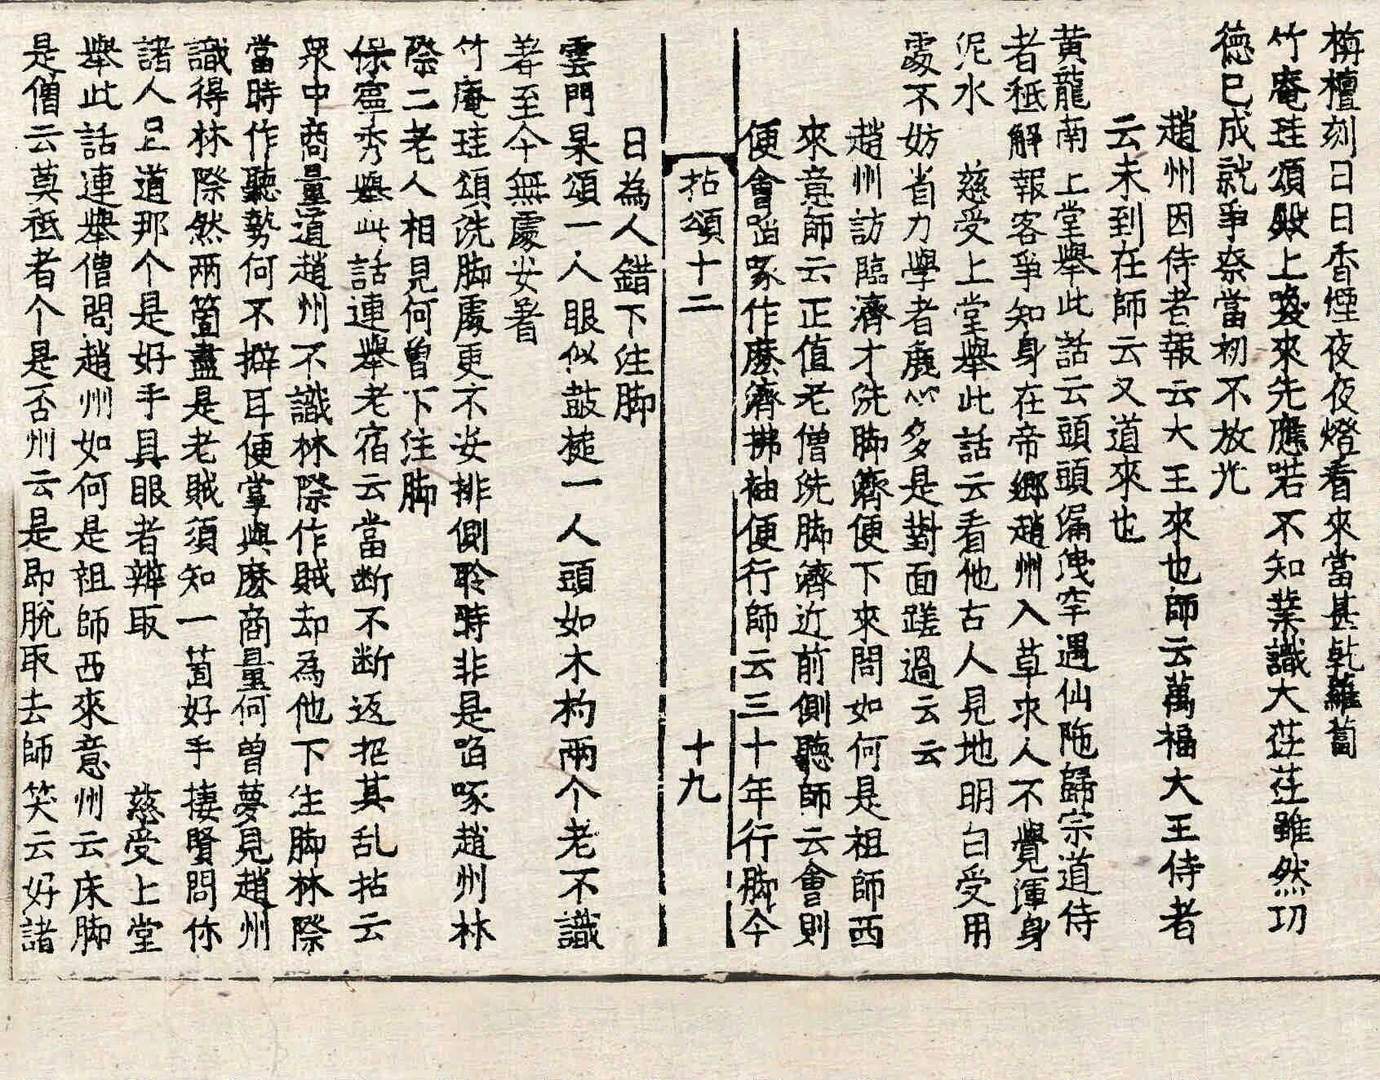 栴檀刻日日香煙夜夜燈看來當甚乹蘿蔔
竹庵珪頌殿上喚來先應喏不知業識大茫茫雖然功
德已成就爭奈當初不放光
趙州因侍者報云大王來也師云萬福大王侍者
云未到在師云又道來也
黃龍南上堂舉此話云頭頭漏洩罕遇仙陁歸宗道侍
者秖解報客爭知身在帝鄉趙州入草求人不覺渾身
泥水 慈受上堂舉此話云看他古人見地明白受用
處不妨省力學者麁心多是對面蹉過云云
趙州訪臨濟才洗脚濟便下來問如何是祖師西
來意師云正值老僧洗脚濟近前側聽師云會則
便會啗啄作麼濟拂袖便行師云三十年行脚今
拈頌十二 十九
日為人錯下注脚
雲門杲頌一人眼似鼓槌一人頭如木杓兩个老不識
著至今無處安著
竹庵珪頌洗脚處更不安排側聆時非是啗啄趙州林
際二老人相見何曾下注脚
保寧秀舉此話連舉老宿云當断不断返招其乱拈云
衆中商量道趙州不識林際作賊却為他下注脚林際
當時作聽勢何不擗耳便掌與麼商量何曾夢見趙州
識得林際然兩箇盡是老賊須知一箇好手棲賢問你
諸人且道那个是好手具眼者辨取 慈受上堂
舉此話連舉僧問趙州如何是祖師西來意州云床脚
是僧云莫秖者个是否州云是即脫取去師笑云好諸